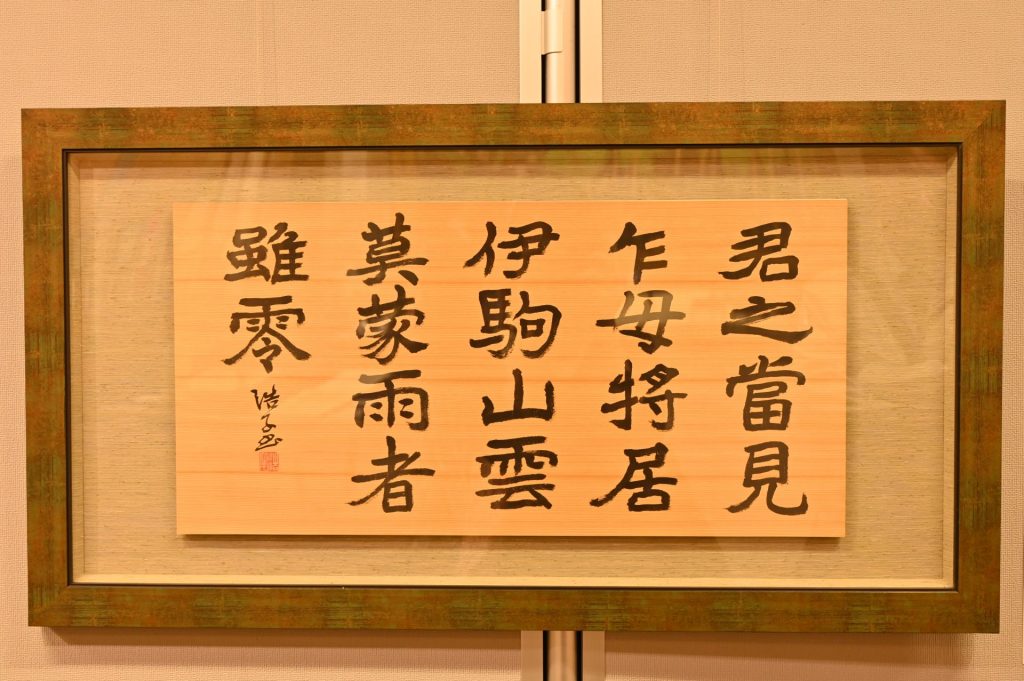 君之當見
乍母將居
伊駒山雲
莫蒙雨者
雖零
浩子書